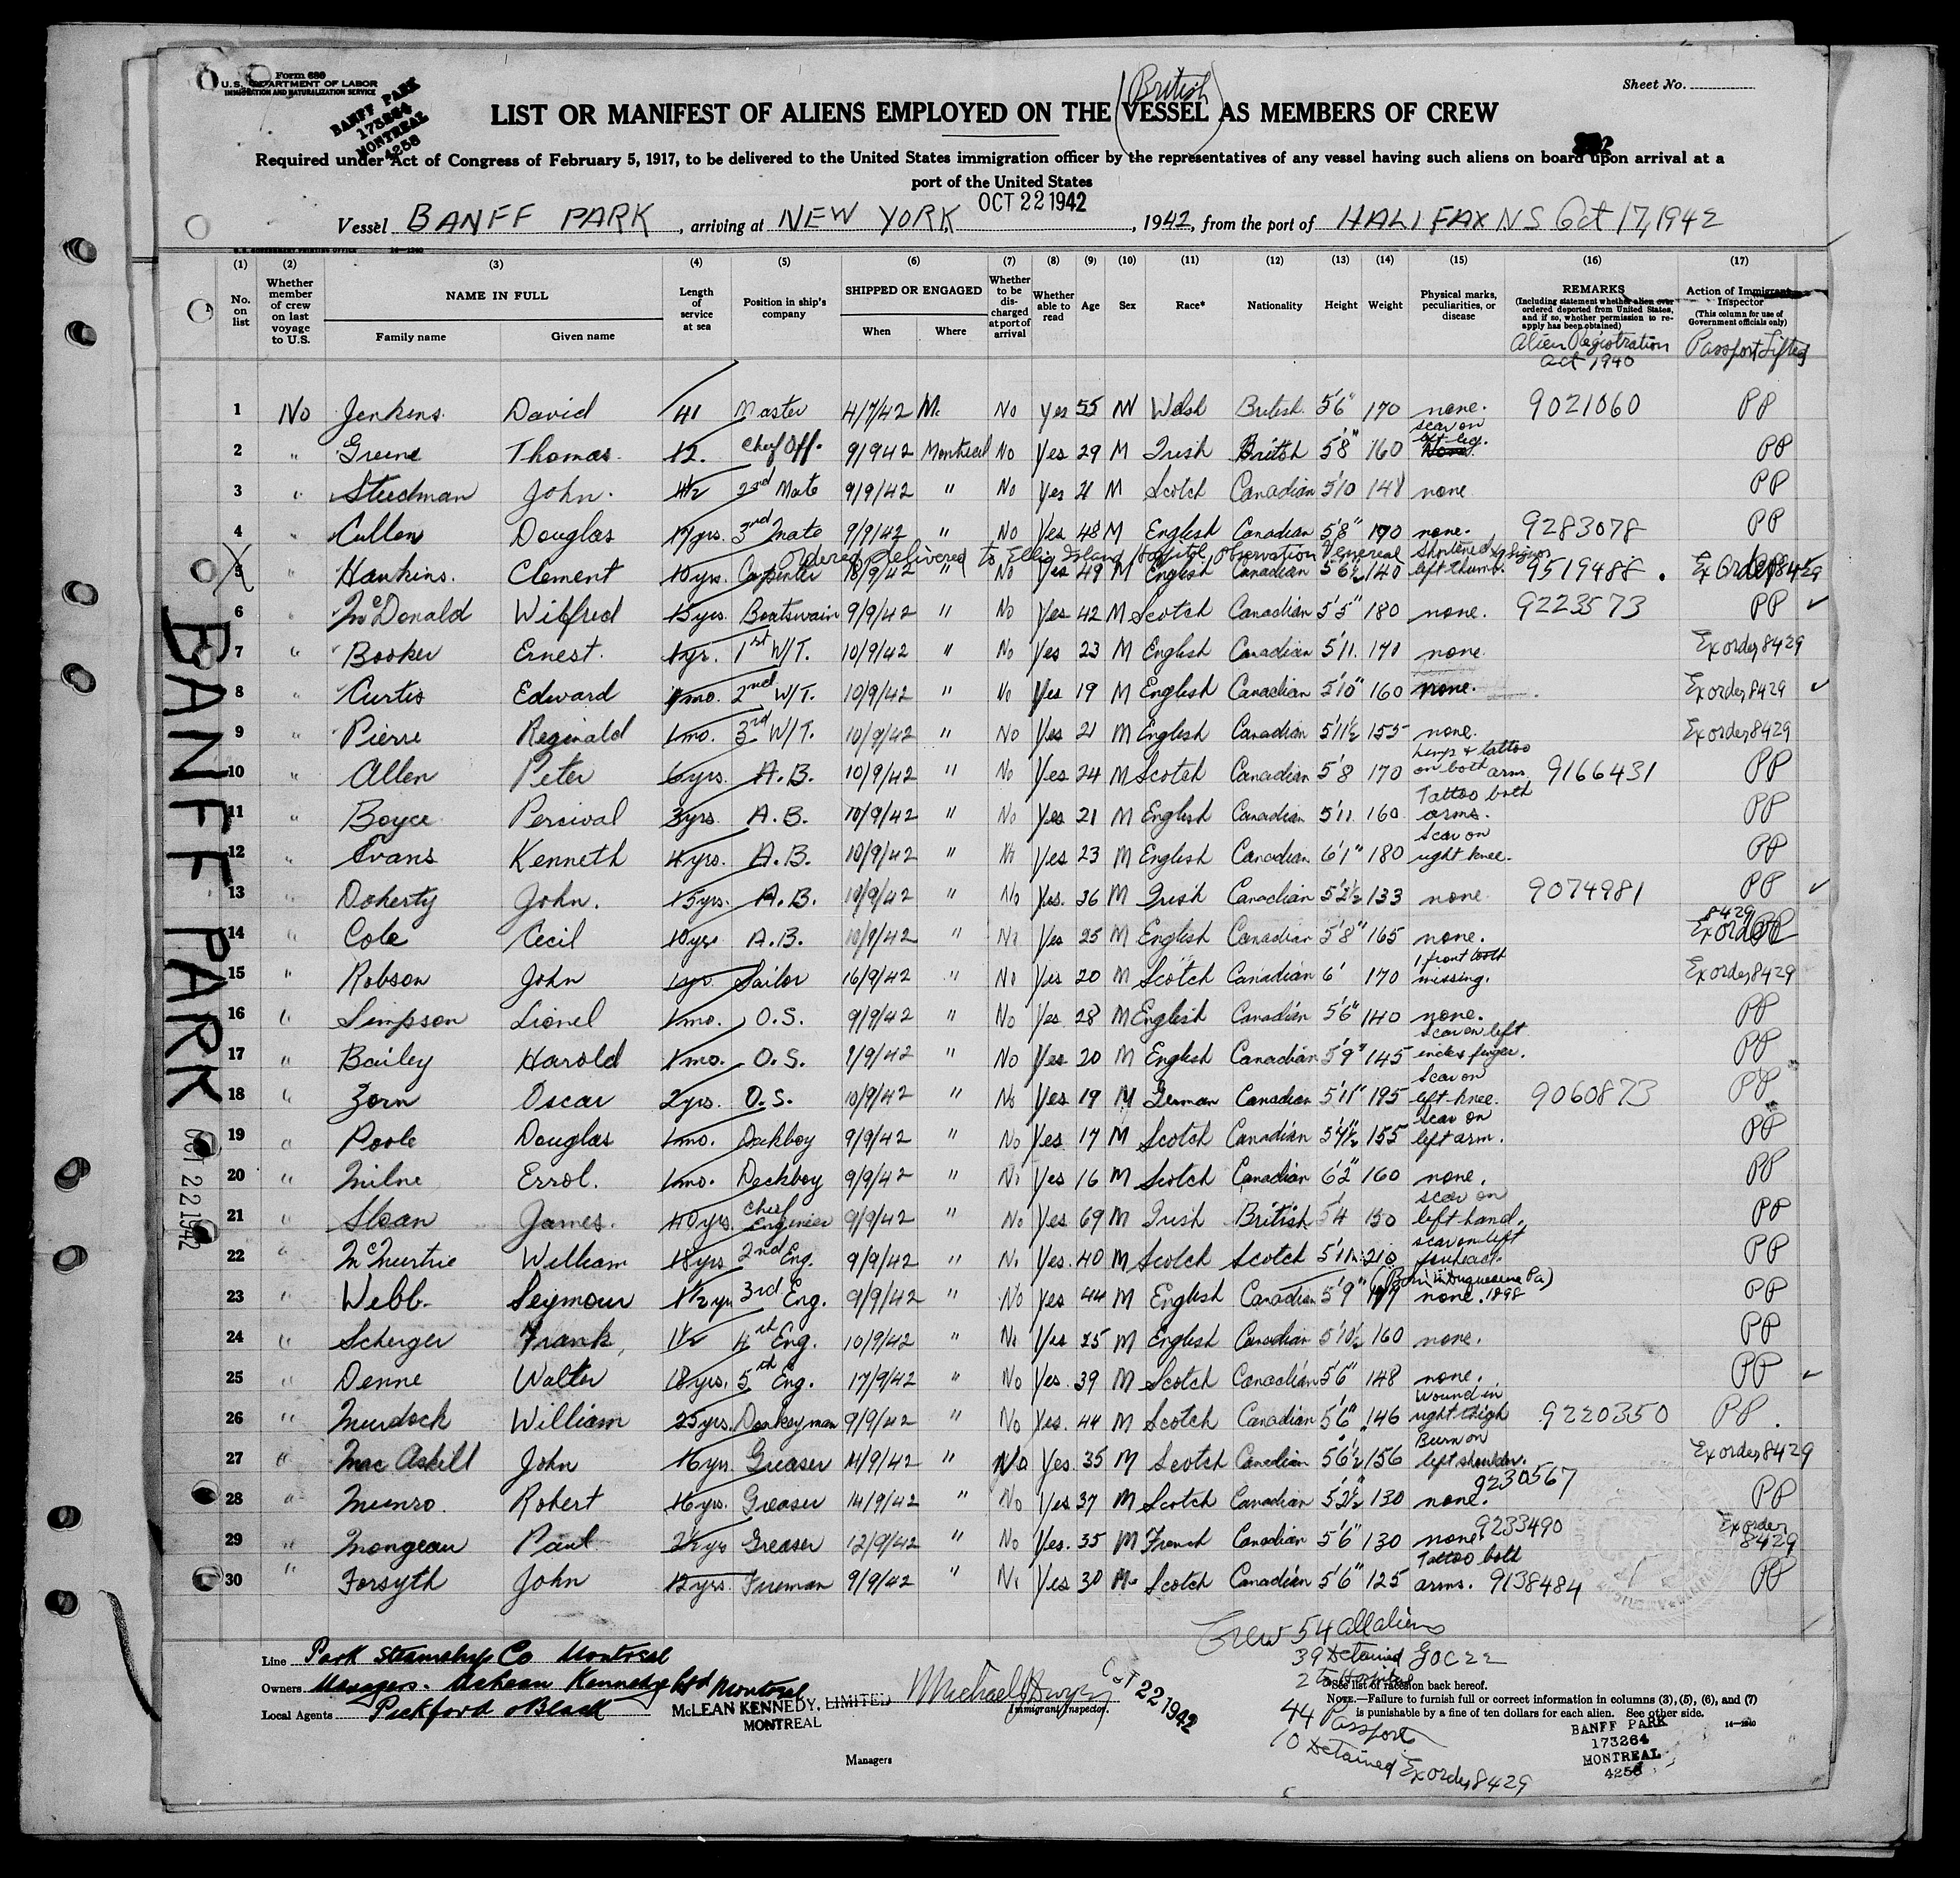 Form 680
U.S. DEPARTMENT OF LABOR
IMMIGRATION AND NATURALIZATION SERVICE
BANFF PARK
173264
MONTREAL
4256
Sheet No.
British
LIST OR MANIFEST OF ALIENS EMPLOYED ON THE VESSEL AS MEMBERS OF CREW
Required under Act of Congress of February 5, 1917, to be delivered to the United States immigration officer by the representatives of any vessel having such aliens on board upon arrival at a
port of the United States
OCT 22 1942
Vessel BANFF PARK, arriving at NEW YORK, 1942, from the port of HALIFAX N S Oct 17, 1942
U.S. GOVERNMENT PRINTING OFFICE 14-1940
(1) (2) (3) (4) (5) (6) (7) (8) (9) (10) (11) (12) (13) (14) (15) (16) (17)
No. on list
Whether member of crew on last voyage to U.S.
NAME IN FULL
Family name Given name
Length of service at sea
Position in ship's company
SHIPPED OR ENGAGED
When Where
Whether to be discharged at port of arrival
Whether able to read
Age
Sex
Race*
Nationality
Height
Weight
Physical marks, peculiarities, or disease
REMARKS
(Including statement whether alien ever ordered deported from United States, and if so, whether permission to reapply has been obtained)
Alien Registration Act 1940
Action of Immigrant Inspector
(This column for use of Government officials only)
Passport Lifted
1 No Jenkins David 41 Master 4/7/42 M. No Yes 55 M Welsh British 5'6" 170 none. 9021060 PP
2 " Greene Thomas 12. Chief Off. 9/9 42 Montreal No Yes 29 M Irish British 5'8" 160 scar on left leg. PP
3 " Steedman John. 2nd Mate 9/9/42 " No Yes M Scotch Canadian 5'10 148 none PP
4 " Cullen Douglas 17 yrs. 3rd Mate 9/9/42 " No Yes 48 M English Canadian 5'8" 170 none. 9283078 PP
ordered delivered to Ellis Island Hospital, observation Venereal
5 " Hankins. Clement 10 yrs. Carpenter 18/9/42 " No Yes 49 M English Canadian 5'6½ 140 Shortened left thumb. 9519488 Ex Order 8429
6 " McDonald Wilfred 15 yrs. Boatswain 9/9/42 " No Yes 42 M Scotch Canadian 5'5" 180 none. 9223573 PP
7 " Booker Ernest. 1 yr. 1st W/T. 10/9/42 " No Yes 23 M English Canadian 5'11. 170 none Ex order 8429
8 " Curtis Edward 1 mo. 2nd W/T. 10/9/42 " No Yes 19 M English Canadian 5'10" 160 none. Ex order 8429
9 " Pierre Reginald 1 mo. 3rd W/T. 10/9/42 " No Yes 21 M English Canadian 5'11½ 155 none. Ex order 8429
10 " Allen Peter 6 yrs. A.B. 10/9/42 " No Yes 24 M Scotch Canadian 5'8 170 tattoo on both arms 9166431 PP
11 " Boyce Percival 3 yrs A.B. 10/9/42 " No Yes 21 M English Canadian 5'11 160 Tattoo both arms. PP
12 " Evans Kenneth 4 yrs. A.B. 10/9/42 " No Yes 23 M English Canadian 6'1" 180 scar on right knee. PP
13 " Doherty John. 15 yrs. A.B. 10/9/42 " No Yes. 36 M Irish Canadian 5'3½ 133 none 9074981 PP
14 " Cole Cecil 10 yrs A.B. 10/9/42 " No Yes 25 M English Canadian 5'8" 165 none. 8429 Ex order
15 " Robson John 1 yr. Sailor 16/9/42 " No Yes 20 M Scotch Canadian 6' 170 1 front tooth missing. Ex order 8429
16 " Simpson Lionel 1 mo. O.S. 9/9/42 " No Yes 28 M English Canadian 5'6" 140 none. PP
17 " Bailey Harold 1 mo. O.S. 9/9/42 " No Yes 20 M English Canadian 5'9" 145 scar on left index finger. PP
18 " Zorn Oscar 2 yrs. O.S. 10/9/42 " No Yes 19 M German Canadian 5'11" 195 Scar on left knee. 9060873 PP
19 " Poole Douglas 1 mo. Deckboy 9/9/42 " No Yes 17 M Scotch Canadian 5'4½" 155 Scar on left arm. PP
20 " Milne Errol. 1 mo. Deckboy 9/9/42 " No Yes 16 M Scotch Canadian 6'2" 160 none. PP
21 " Sloan James. 40 yrs. Chief Engineer 9/9/42 " No Yes 69 M Irish British 5'4 150 scar on left hand. PP
22 " McMurtrie William 18 yrs 2nd Eng. 9/9/42 " No Yes. 40 M Scotch Scotch 5'11 210 scar on left forehead. PP
23 " Webb. Seymour 1½ yr 3rd Eng. 9/9/42 " No Yes 44 M English Canadian 5'9" none. (Born in Duquesne Pa) 1898 PP
24 " Scherger Frank 1½ 4th Eng. 10/9/42 " No Yes 25 M English Canadian 5'10½ 160 none. PP
25 " Denne Walter 18 yrs. 5th Eng. 17/9/42 " No Yes. 39 M Scotch Canadian 5'6" 148 none. PP
26 " Murdock William 25 yrs. Donkeyman 9/9/42 " No Yes. 44 M Scotch Canadian 5'6" 146 Wound in right thigh 9220350 PP.
27 " MacAskill John 16 yrs. Greaser 14/9/42 " No Yes. 35 M Scotch Canadian 5'6½ 156 Burn on left shoulder. Ex order 8429
28 " Munro. Robert 16 yrs. Greaser 14/9/42 " No Yes 37 M Scotch Canadian 5'2½" 130 none. 9230567 PP
29 " Mongeau Paul 2½ yrs Greaser 12/9/42 " No Yes. 35 M French Canadian 5'6" 130 none. 9233490 Ex order 8429
30 " Forsyth John 12 yrs. Fireman 9/9/42 " No Yes 30 M. Scotch Canadian 5'6" 125 Tattoo both arms. 9138484 PP
BANFF PARK
OCT 22 1942
Crew 54 all aliens
39 Detained
2 to Hospital
44 Passports
10 Detained Ex order 8429
Line Park Steamship Co Montreal
Owners Managers. McLean Kennedy Ltd Montreal
Local Agents Pickford & Black
McLEAN KENNEDY, LIMITED
MONTREAL
Managers
Michael J Dwyer
Immigrant Inspector.
OCT 22 1942
*See list of races on back hereof.
NOTE.—Failure to furnish full or correct information in columns (3), (5), (6), and (7)
is punishable by a fine of ten dollars for each alien. See other side.
14-1940
BANFF PARK
173264
MONTREAL
4256